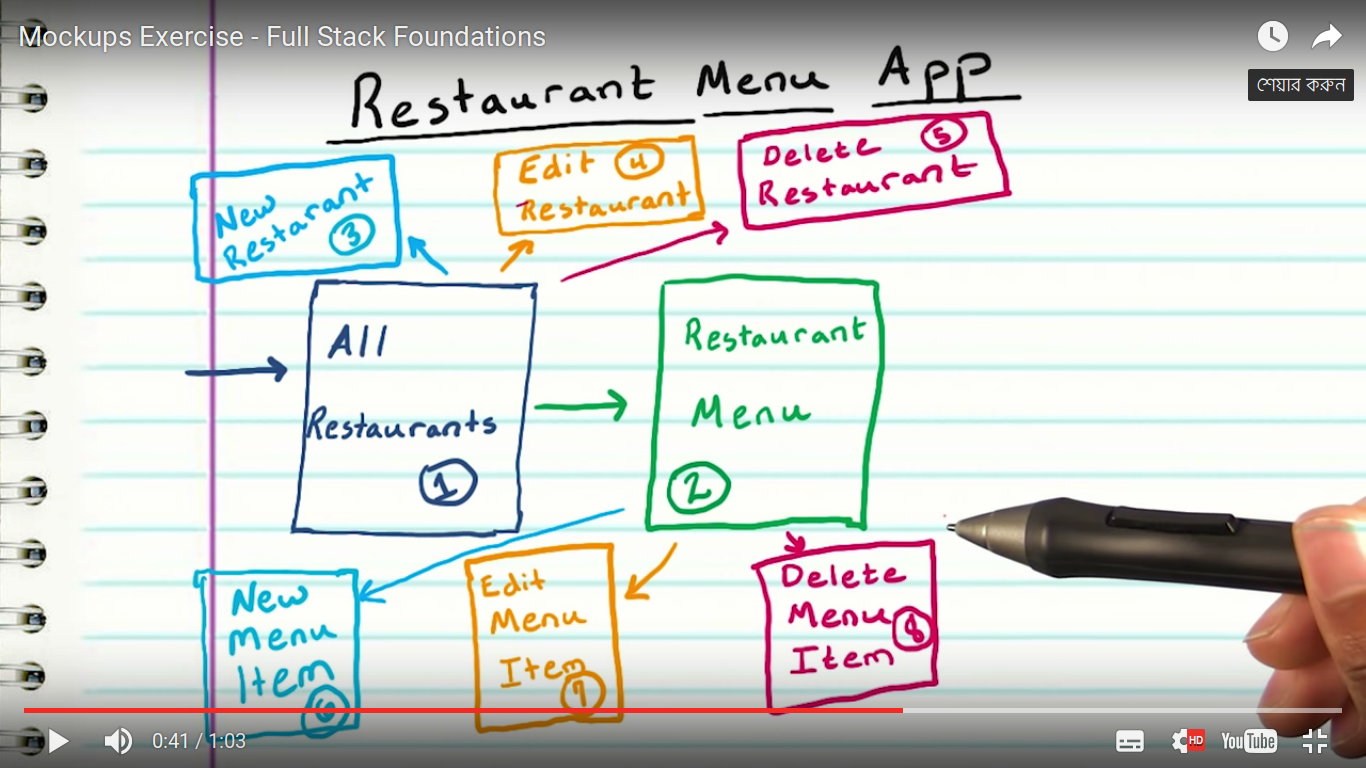 Mockups Exercise - Full Stack Foundations
শেয়ার করুন
Restaurant Menu App
New
Restarant
3
Edit 4
Restaurant
Delete 5
Restaurant
All
Restaurants
1
Restaurant
Menu
2
New
Menu
Item
6
Edit
Menu
Item
7
Delete
Menu 8
Item
0:41 / 1:03
HD
YouTube